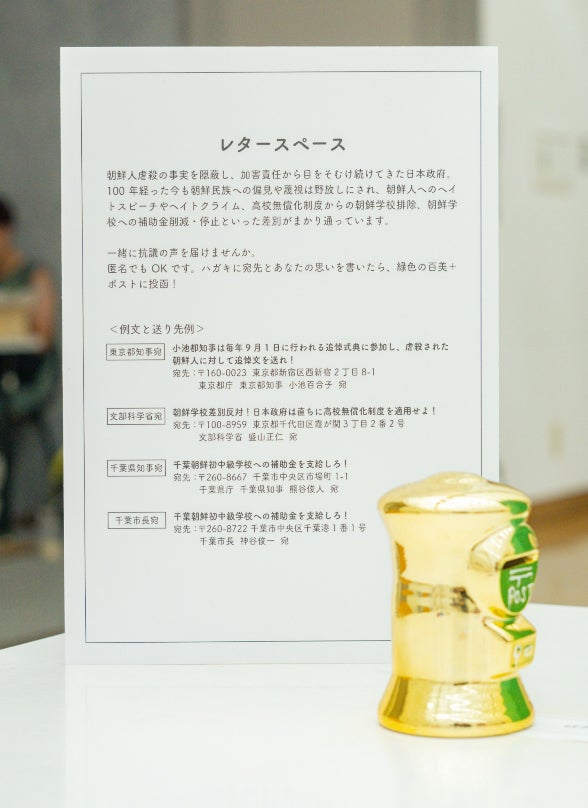 レタースペース
朝鮮人虐殺の事実を隠蔽し、加害責任から目をそむけ続けてきた日本政府。
100年経った今も朝鮮民族への偏見や蔑視は野放しにされ、朝鮮人へのヘイ
トスピーチやヘイトクライム、高校無償化制度からの朝鮮学校排除、朝鮮学
校への補助金削減・停止といった差別がまかり通っています。
一緒に抗議の声を届けませんか。
匿名でも OK です。ハガキに宛先とあなたの思いを書いたら、緑色の百美＋
ポストに投函！
＜例文と送り先例＞
東京都知事宛 小池都知事は毎年９月１日に行われる追悼式典に参加し、虐殺された
朝鮮人に対して追悼文を送れ！
宛先：〒160-0023 東京都新宿区西新宿２丁目8-1
東京都庁 東京都知事 小池百合子 宛
文部科学省宛 朝鮮学校差別反対！日本政府は直ちに高校無償化制度を適用せよ！
宛先：〒100-8959 東京都千代田区霞が関３丁目２番２号
文部科学省 盛山正仁 宛
千葉県知事宛 千葉朝鮮初中級学校への補助金を支給しろ！
宛先：〒260-8667 千葉市中央区市場町 1-1
千葉県庁 千葉県知事 熊谷俊人 宛
千葉市長宛 千葉朝鮮初中級学校への補助金を支給しろ！
宛先：〒260-8722 千葉市中央区千葉港１番１号
千葉市長 神谷俊一 宛
〒
POST